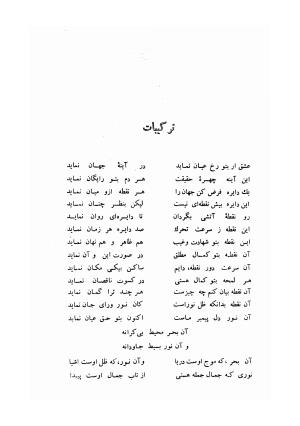 ترکیبات
عشق ار بتو رخ عیان نماید در آینهٔ جهان نماید
این آینه چهرهٔ حقیقت هر دم بتو رایگان نماید
یك دایره فرض کن جهان را هر نقطه ازو میان نماید
این دایره بیش نقطه‌ای نیست لیکن بنظر چنان نماید
رو نقطهٔ آتشی بگردان تا دایره‌ای روان نماید
این نقطه ز سرعت تحرك صد دایره هر زمان نماید
این نقطه بتو شهادت وغیب هم ظاهر و هم نهان نماید
آن نقطه بتو کمال مطلق در صورت این و آن نماید
آن سرعت دور نقطه، دایم ساکن بیکی مکان نماید
در لمحه بتو کمال هستی در کسوت ناقصان نماید
آن نقطه بیان کنم چه چیزست هر چند ترا گمان نماید
آن نقطه بدانکه ظل نوراست کان نور ورای جان نماید
آن نور دل پیمبر ماست اکنون بتو حق عیان نماید
آن بحر محیط بی‌کرانه
و آن نور بسیط جاودانه
آن بحر، که موج اوست دریا وآن نور، که ظل اوست اشیا
نوری که جمال جمله هستی از تاب جمال اوست پیدا